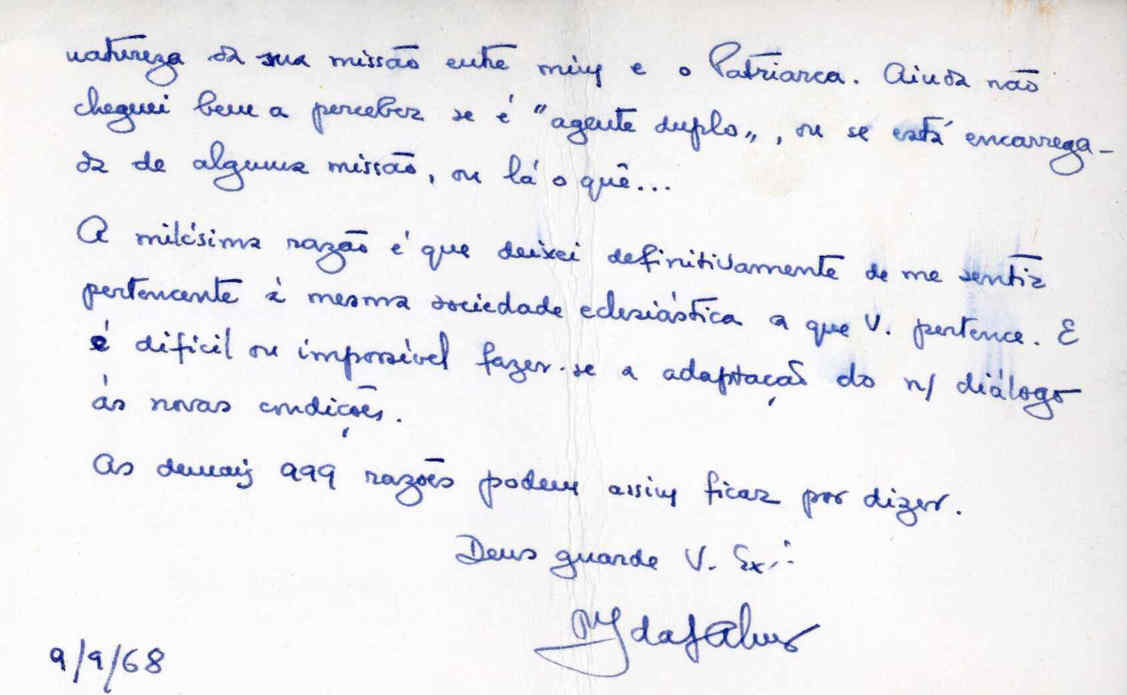 natureza da sua missão entre mim e o Patriarca. Ainda não
cheguei bem a perceber se é "agente duplo", ou se está encarrega-
da de alguma missão, ou lá o quê...
A milésima razão é que deixei definitivamente de me sentir
pertencente à mesma sociedade eclesiástica a que V. pertence. E
é difícil ou impossível fazer-se a adaptação do n/ diálogo
ás novas condições.
As demais 999 razões podem assim ficar por dizer.
Deus guarde V. Ex.ª
9/9/68